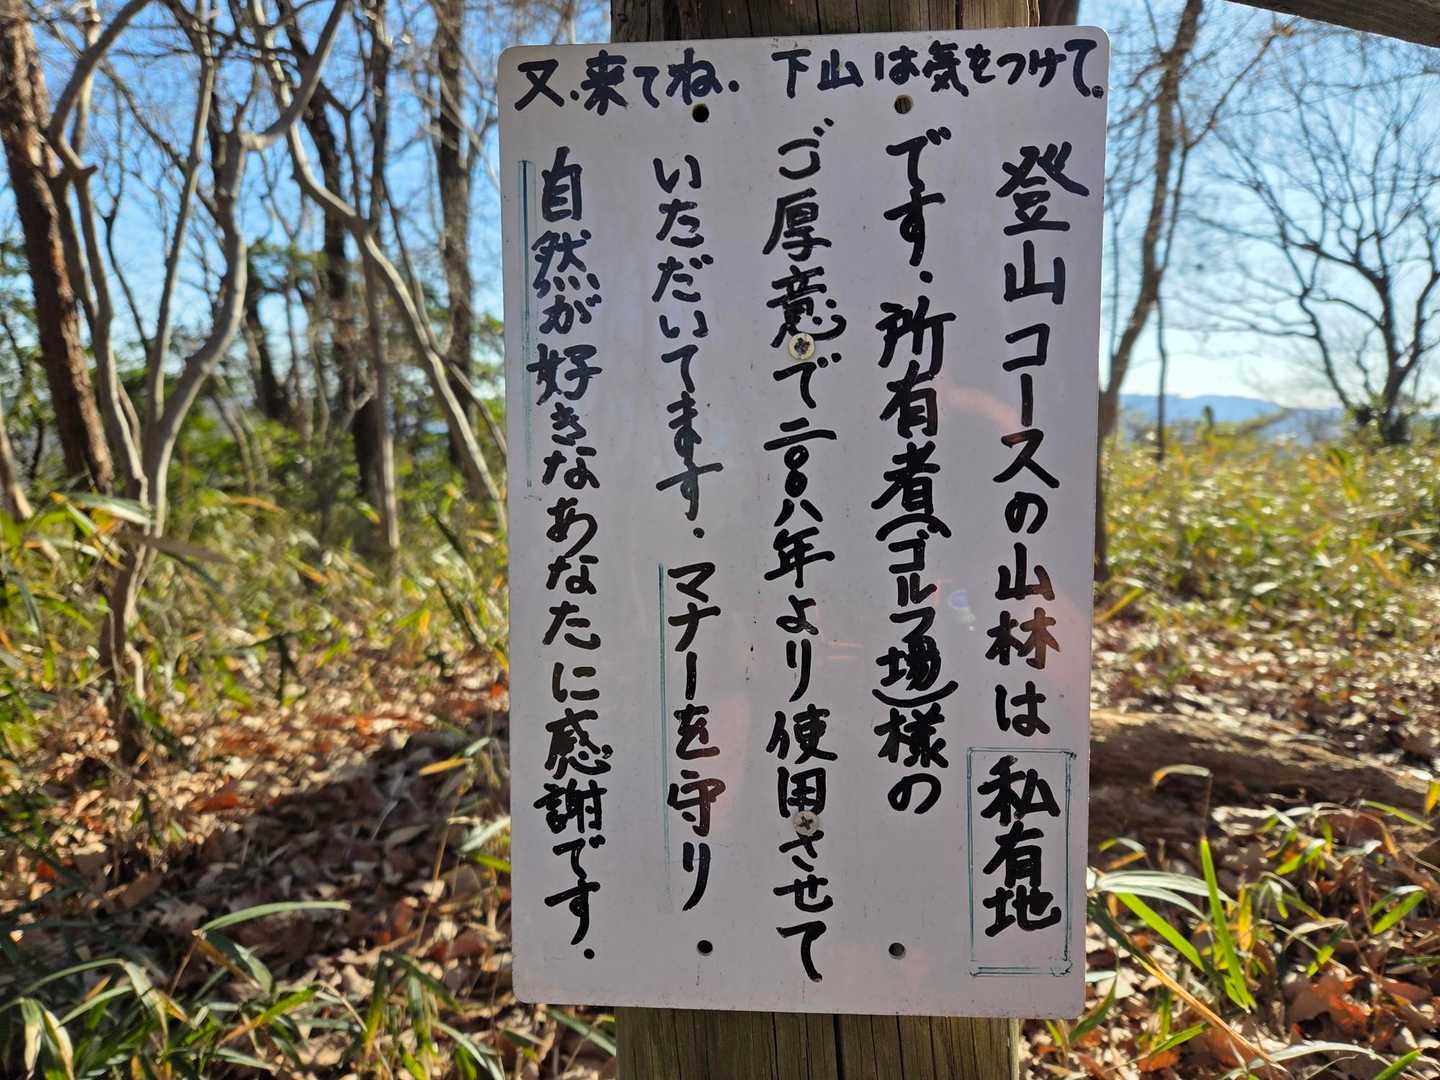 又、来てね. 下山は気をつけて。
登山コースの山林は私有地
です. 所有者(ゴルフ場)様の
ご厚意で二〇〇八年より使用させて
いただいてます. マナーを守り
自然が好きなあなたに感謝です.